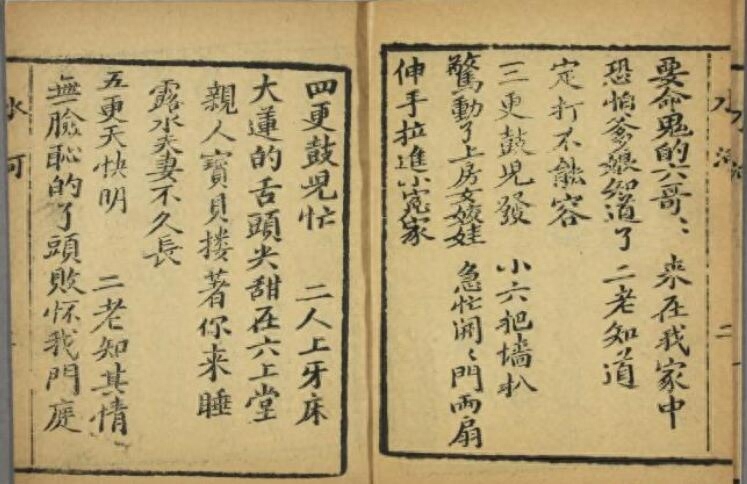 二
要命鬼的六哥〻 来在我家中
恐怕爹娘知道了 二老知道
定打不能容
三更鼓児發 小六把墻扒
驚動了上房女姣娃 急忙開〻門兩扇
伸手拉進小冤家
四更鼓児忙 二人上牙床
大蓮的舌頭尖甜在六上堂
親人寳貝摟著你来睡
露水夫妻不久長
五更天快明 二老知其情
無臉恥的了頭敗怀我門庭